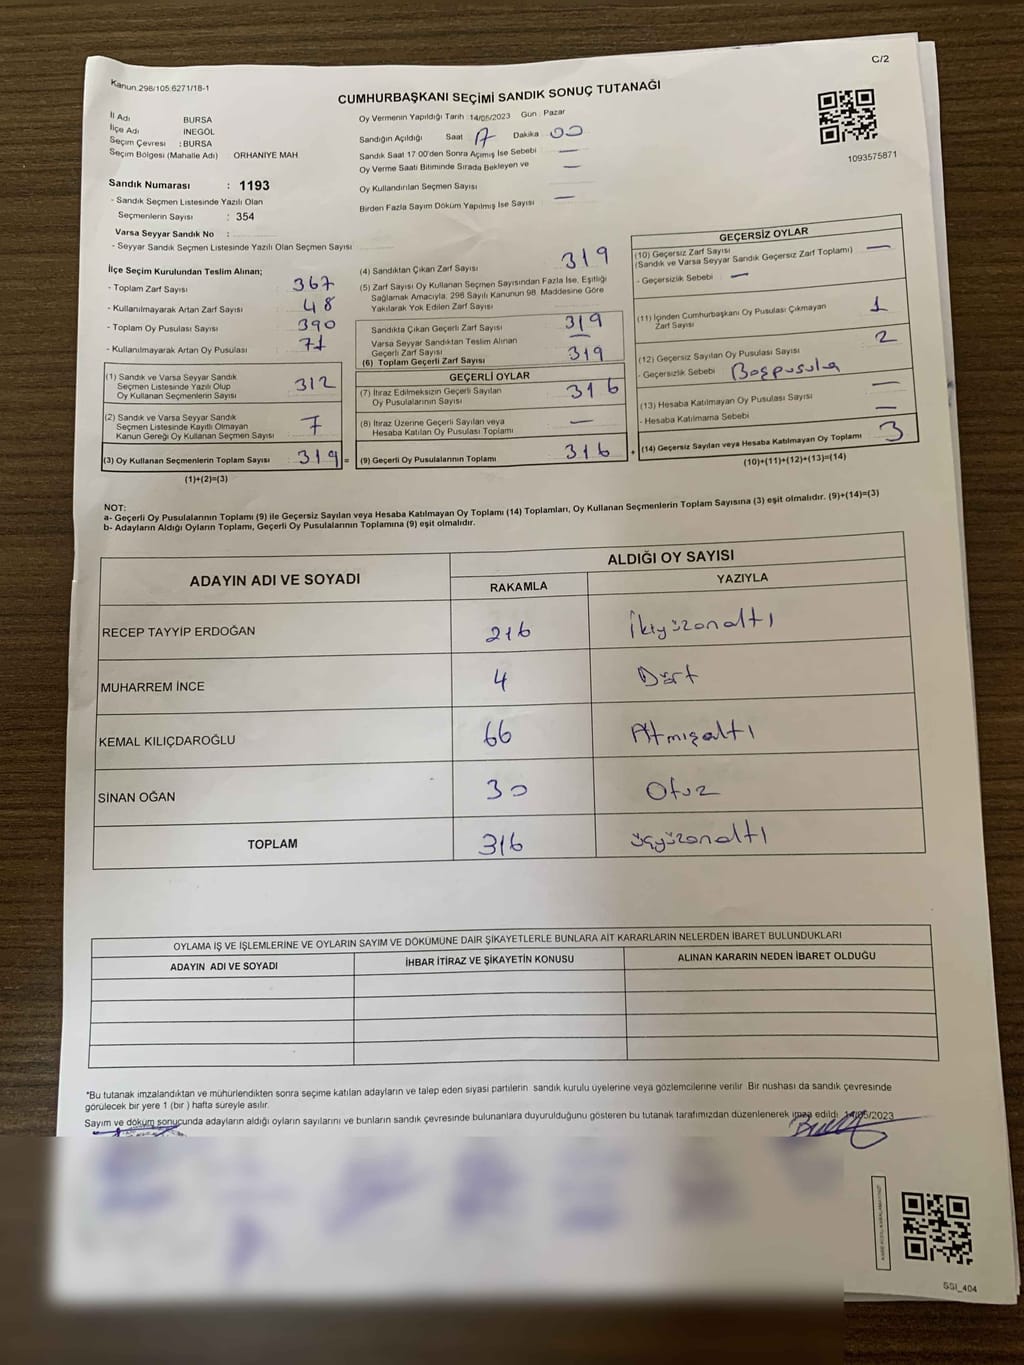 C/2
Kanun 298/105.6271/18-1
CUMHURBAŞKANI SEÇİMİ SANDIK SONUÇ TUTANAĞI
İl Adı BURSA
İlçe Adı İNEGÖL
Seçim Çevresi : BURSA
Seçim Bölgesi (Mahalle Adı) ORHANİYE MAH
Oy Vermenin Yapıldığı Tarih 14/05/2023 Gün : Pazar
Sandığın Açıldığı Saat 17 Dakika 00
Sandık Saat 17 00'den Sonra Açımış Ise Sebebi —
Oy Verme Saati Bitiminde Sırada Bekleyen ve —
Oy Kullandırılan Seçmen Sayısı
Birden Fazla Sayım Döküm Yapılmış Ise Sayısı —
1093575871
Sandık Numarası : 1193
- Sandık Seçmen Listesinde Yazılı Olan
Seçmenlerin Sayısı : 354
Varsa Seyyar Sandık No :
- Seyyar Sandık Seçmen Listesinde Yazılı Olan Seçmen Sayısı
İlçe Seçim Kurulundan Teslim Alınan;
- Toplam Zarf Sayısı 367
- Kullanılmayarak Artan Zarf Sayısı 48
- Toplam Oy Pusulası Sayısı 390
- Kullanılmayarak Artan Oy Pusulası 71
(1) Sandık ve Varsa Seyyar Sandık
Seçmen Listesinde Yazılı Olup
Oy Kullanan Seçmenlerin Sayısı 312
(2) Sandık ve Varsa Seyyar Sandık
Seçmen Listesinde Kayıtlı Olmayan
Kanun Gereği Oy Kullanan Seçmen Sayısı 7
(3) Oy Kullanan Seçmenlerin Toplam Sayısı 319 =
(1)+(2)=(3)
(4) Sandıktan Çıkan Zarf Sayısı 319
(5) Zarf Sayısı Oy Kullanan Seçmen Sayısından Fazla Ise, Eşitliği
Sağlamak Amacıyla, 298 Sayılı Kanunun 98. Maddesine Göre
Yakılarak Yok Edilen Zarf Sayısı —
Sandıkta Çıkan Geçerli Zarf Sayısı 319
Varsa Seyyar Sandıktan Teslim Alınan
Geçerli Zarf Sayısı —
(6) Toplam Geçerli Zarf Sayısı 319
GEÇERLİ OYLAR
(7) İtiraz Edilmeksizin Geçerli Sayılan
Oy Pusulalarının Sayısı 316
(8) İtiraz Üzerine Geçerli Sayılan veya
Hesaba Katılan Oy Pusulası Toplamı —
(9) Geçerli Oy Pusulalarının Toplamı 316 +
GEÇERSİZ OYLAR
(10) Geçersiz Zarf Sayısı
(Sandık ve Varsa Seyyar Sandık Geçersiz Zarf Toplamı) —
- Geçersizlik Sebebi —
(11) İçinden Cumhurbaşkanı Oy Pusulası Çıkmayan
Zarf Sayısı 1
(12) Geçersiz Sayılan Oy Pusulası Sayısı 2
- Geçersizlik Sebebi Boşpusula
(13) Hesaba Katılmayan Oy Pusulası Sayısı —
- Hesaba Katılmama Sebebi —
(14) Geçersiz Sayılan veya Hesaba Katılmayan Oy Toplamı 3
(10)+(11)+(12)+(13)=(14)
NOT:
a- Geçerli Oy Pusulalarının Toplamı (9) ile Geçersiz Sayılan veya Hesaba Katılmayan Oy Toplamı (14) Toplamları, Oy Kullanan Seçmenlerin Toplam Sayısına (3) eşit olmalıdır. (9)+(14)=(3)
b- Adayların Aldığı Oyların Toplamı, Geçerli Oy Pusulalarının Toplamına (9) eşit olmalıdır.
ADAYIN ADI VE SOYADI ALDIĞI OY SAYISI
RAKAMLA YAZIYLA
RECEP TAYYİP ERDOĞAN 216 İkiyüzonaltı
MUHARREM İNCE 4 Dört
KEMAL KILIÇDAROĞLU 66 Altmışaltı
SİNAN OĞAN 30 Otuz
TOPLAM 316 üçyüzonaltı
OYLAMA İŞ VE İŞLEMLERİNE VE OYLARIN SAYIM VE DÖKÜMÜNE DAİR ŞİKAYETLERLE BUNLARA AİT KARARLARIN NELERDEN İBARET BULUNDUKLARI
ADAYIN ADI VE SOYADI İHBAR İTİRAZ VE ŞİKAYETİN KONUSU ALINAN KARARIN NEDEN İBARET OLDUĞU
*Bu tutanak imzalandıktan ve mühürlendikten sonra seçime katılan adayların ve talep eden siyasi partilerin sandık kurulu üyelerine veya gözlemcilerine verilir. Bir nüshası da sandık çevresinde
görülecek bir yere 1 (bir) hafta süreyle asılır.
Sayım ve döküm sonucunda adayların aldığı oyların sayılarını ve bunların sandık çevresinde bulunanlara duyurulduğunu gösteren bu tutanak tarafımızdan düzenlenerek imza edildi. 14/05/2023
SSI_404